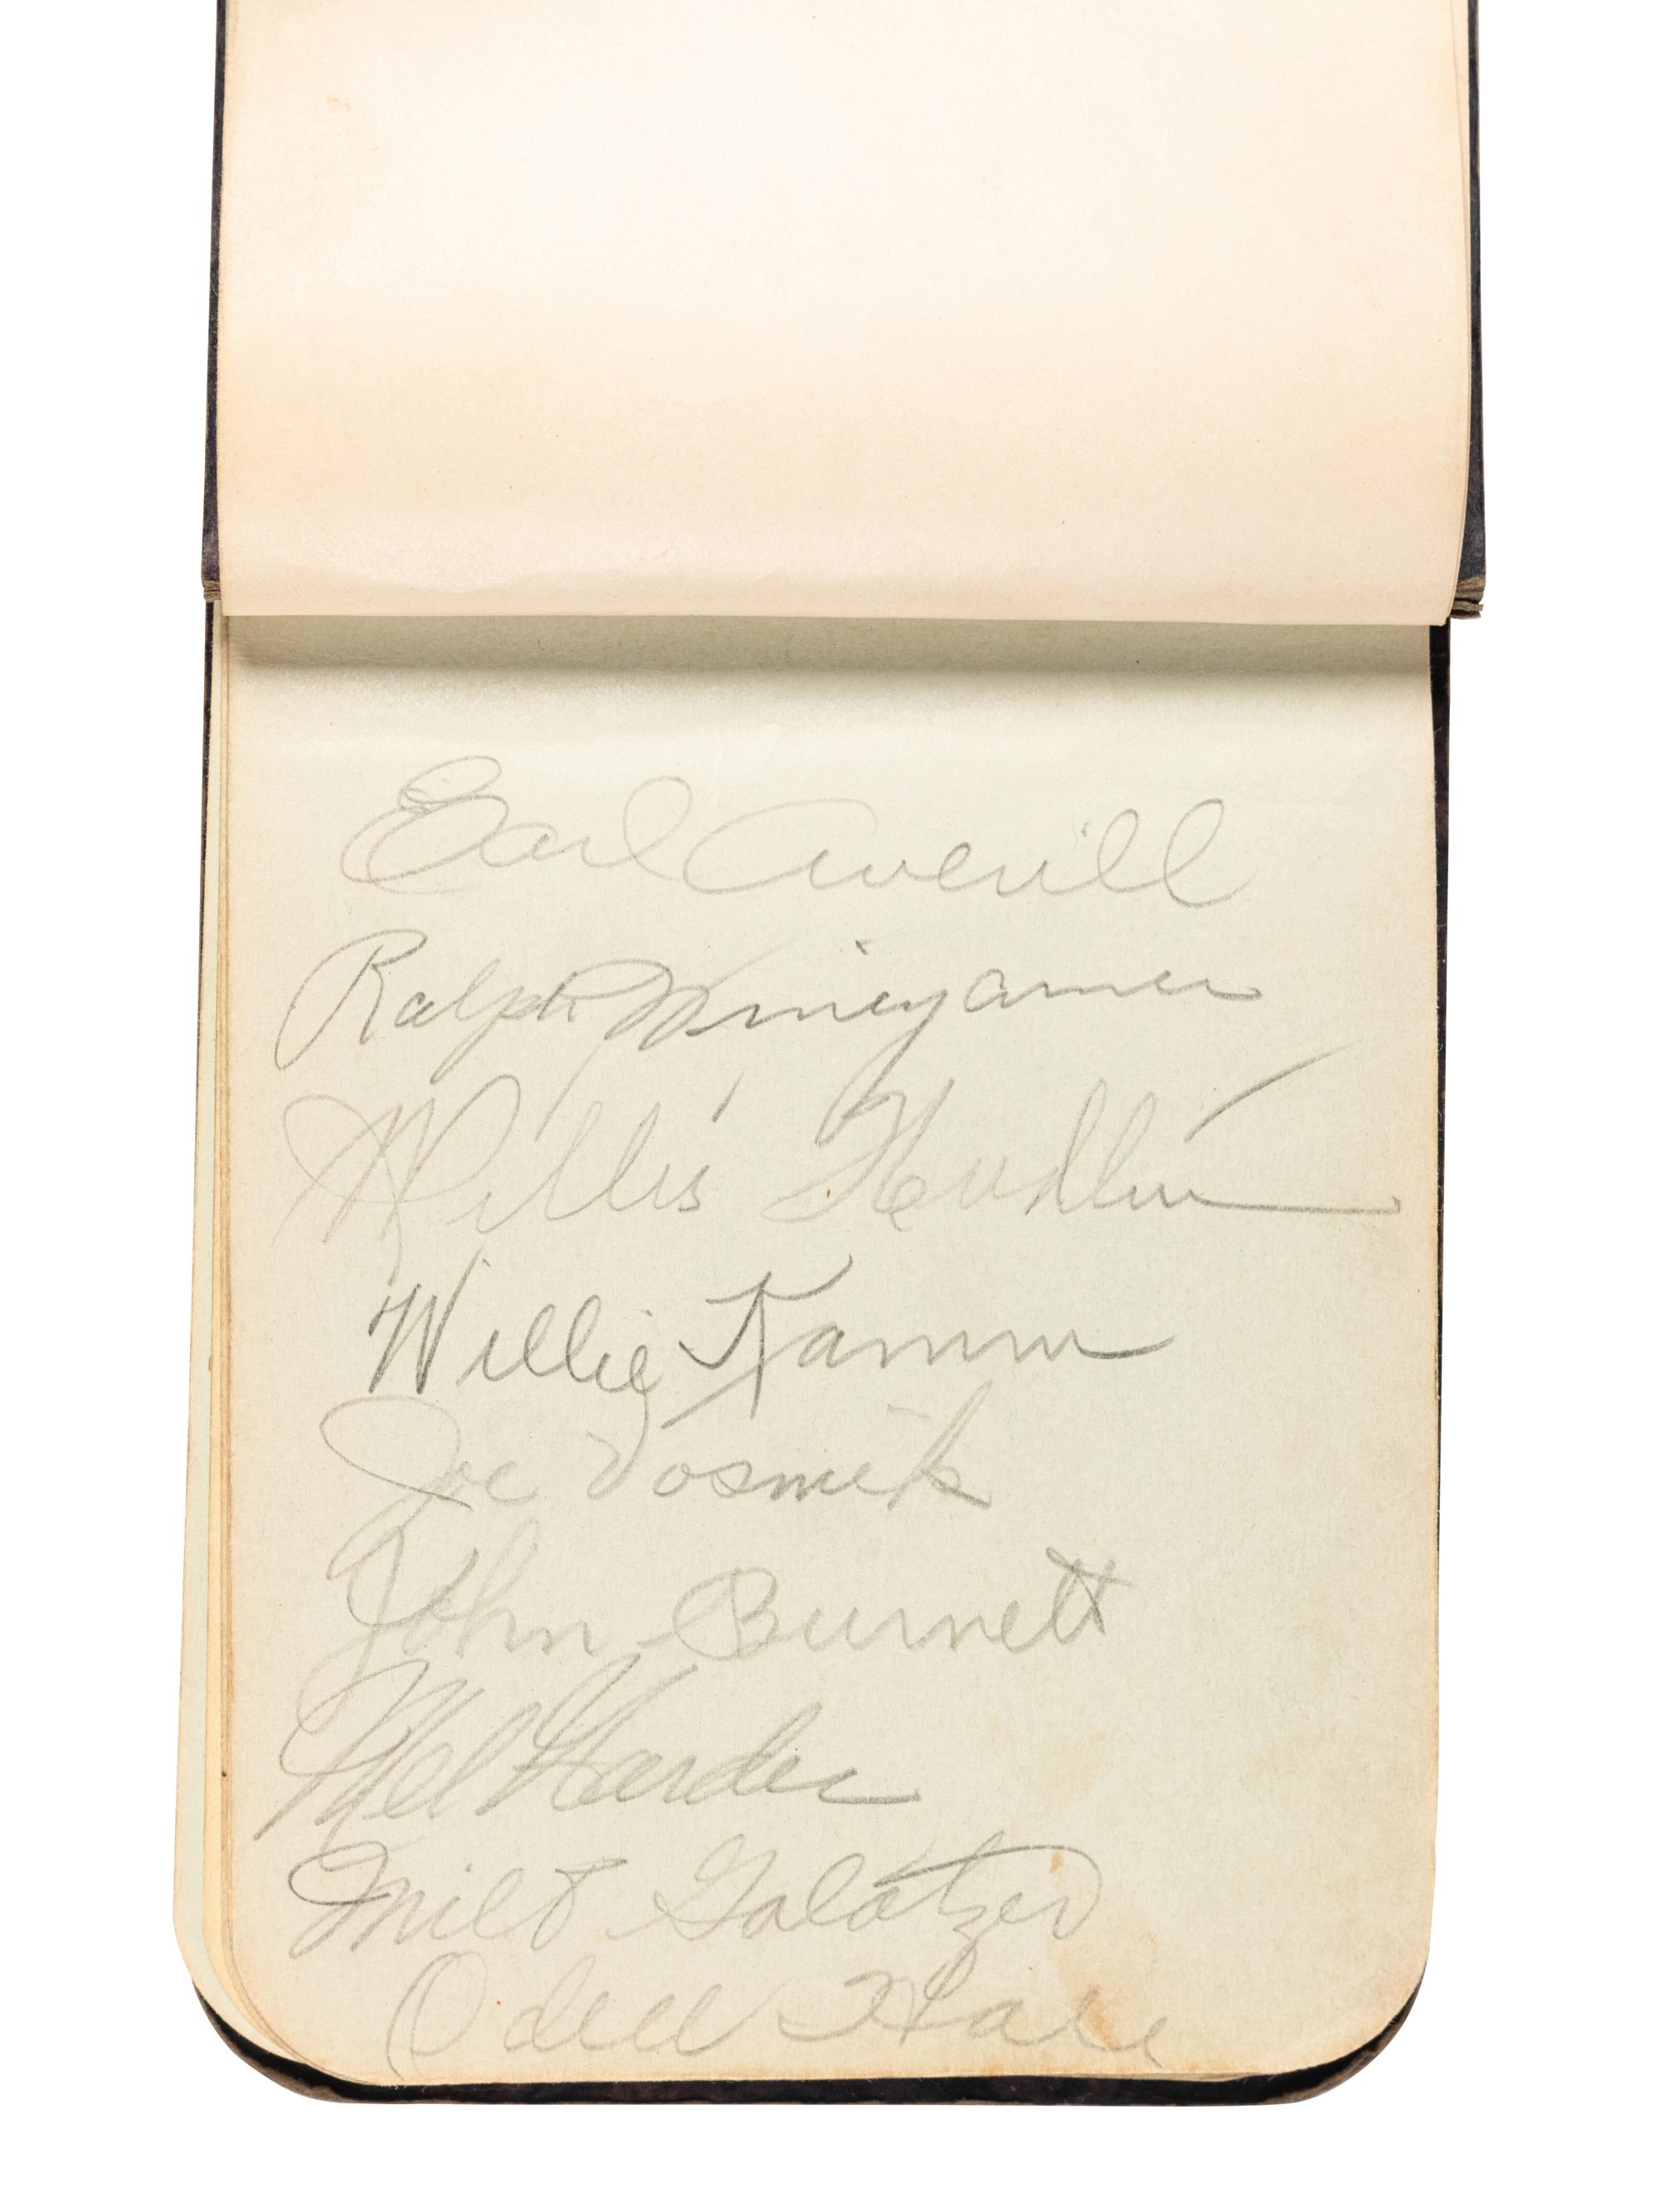 Earl Averill
Ralph Winegarner
Willis Hudlin
Willie Kamm
Joe Vosmik
John Burnett
Mel Harder
Milt Galatzer
Odell Hale